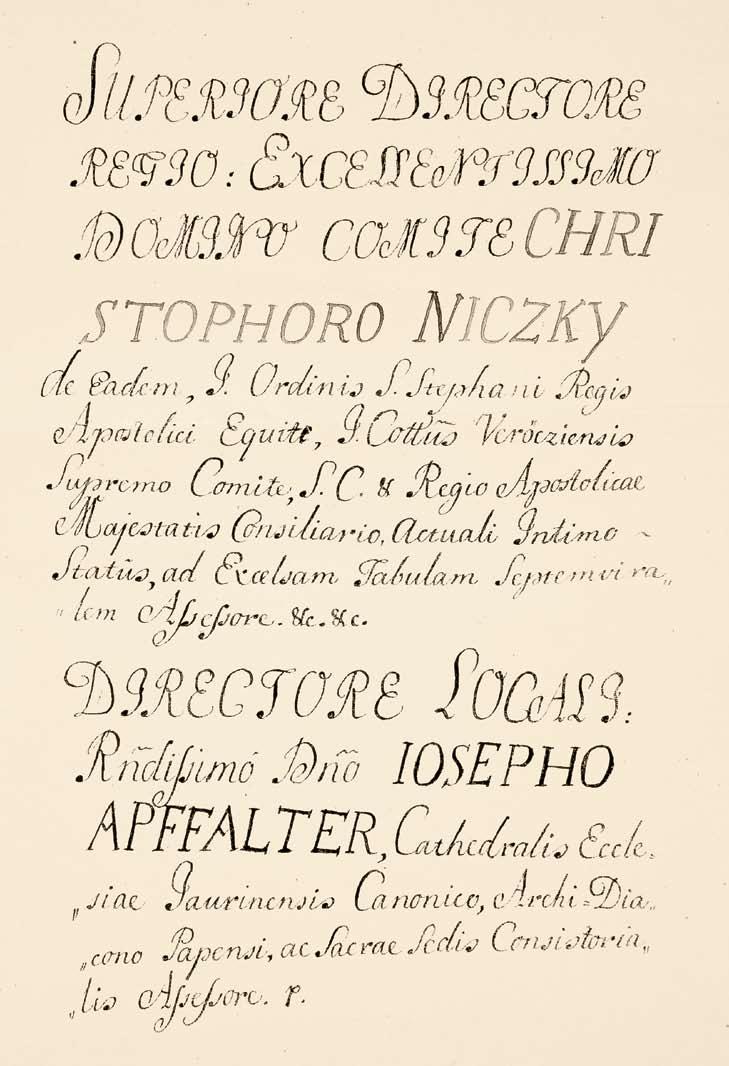 SUPERIORE DIRECTORE
REGIO: EXCELLENTISSIMO
DOMINO COMITE CHRI
STOPHORO NICZKY
de Eadem, I. Ordinis S. Stephani Regis
Apostolici Equite, I. Cottũs Verőcziensis
Supremo Comite, S. C. & Regio Apostolicae
Majestatis Consiliario, Actuali Intimo ~
Statûs, ad Excelsam Tabulam Septemvira„
„lem Aſseſsore. &c. &c.
DIRECTORE LOCALI:
Rñdiſsimó Dño IOSEPHO
APFFALTER, Cathedralis Eccle„
„siae Jaurinensis Canonico, Archi=Dia„
„cono Papensi, ac Sacrae Sedis Consistoria„
„lis Aſseſsore. p.